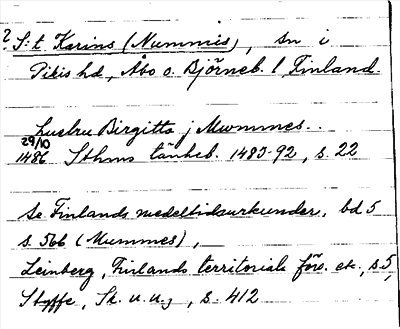 ? S:t Karins (Nummis), sn i
Pikis hd, Åbo o. Björneb. l Finland.
hustru Birgitta j Mwmmes..
29/10
1486 Sthms tänkeb. 1483-92, s. 22
se Finlands medeltidsurkunder, bd 5
s. 566 (Mummes),
Leinberg, Finlands territoriala förs. etc., s. 5,
Styffe, Sk. u. u.; s. 412